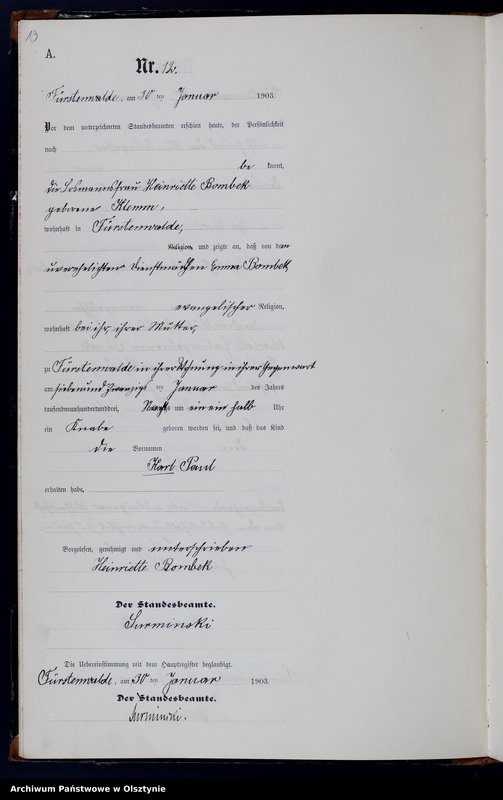 19
A.
Nr. 12.
Fürstenwalde, am 30 ten Januar 1903.
Vor dem unterzeichneten Standesbeamten erschien heute, der Persönlichkeit
nach
be kannt,
die Losmannsfrau Heinriette Bombek
geborene Klemm,
wohnhaft in Fürstenwalde,
Religion, und zeigte an, daß von der
unverehelichten Dienstmädchen Emma Bombek,
evangelischer Religion,
wohnhaft bei ihr, ihrer Mutter,
zu Fürstenwalde in ihrer Wohnung in ihrer Gegenwart
am siebenundzwanzigs ten Januar des Jahres
tausendneunhundertunddrei, Nachts um ein ein halb Uhr
ein Knabe geboren worden sei, und daß das Kind
die Vornamen
Karl Paul
erhalten habe.
Vorgelesen, genehmigt und unterschrieben
Heinriette Bombek
Der Standesbeamte.
Surminski
Die Uebereinstimmung mit dem Hauptregister beglaubigt.
Fürstenwalde, am 30 ten Januar 1903.
Der Standesbeamte.
Surminski.
Archiwum Państwowe w Olsztynie